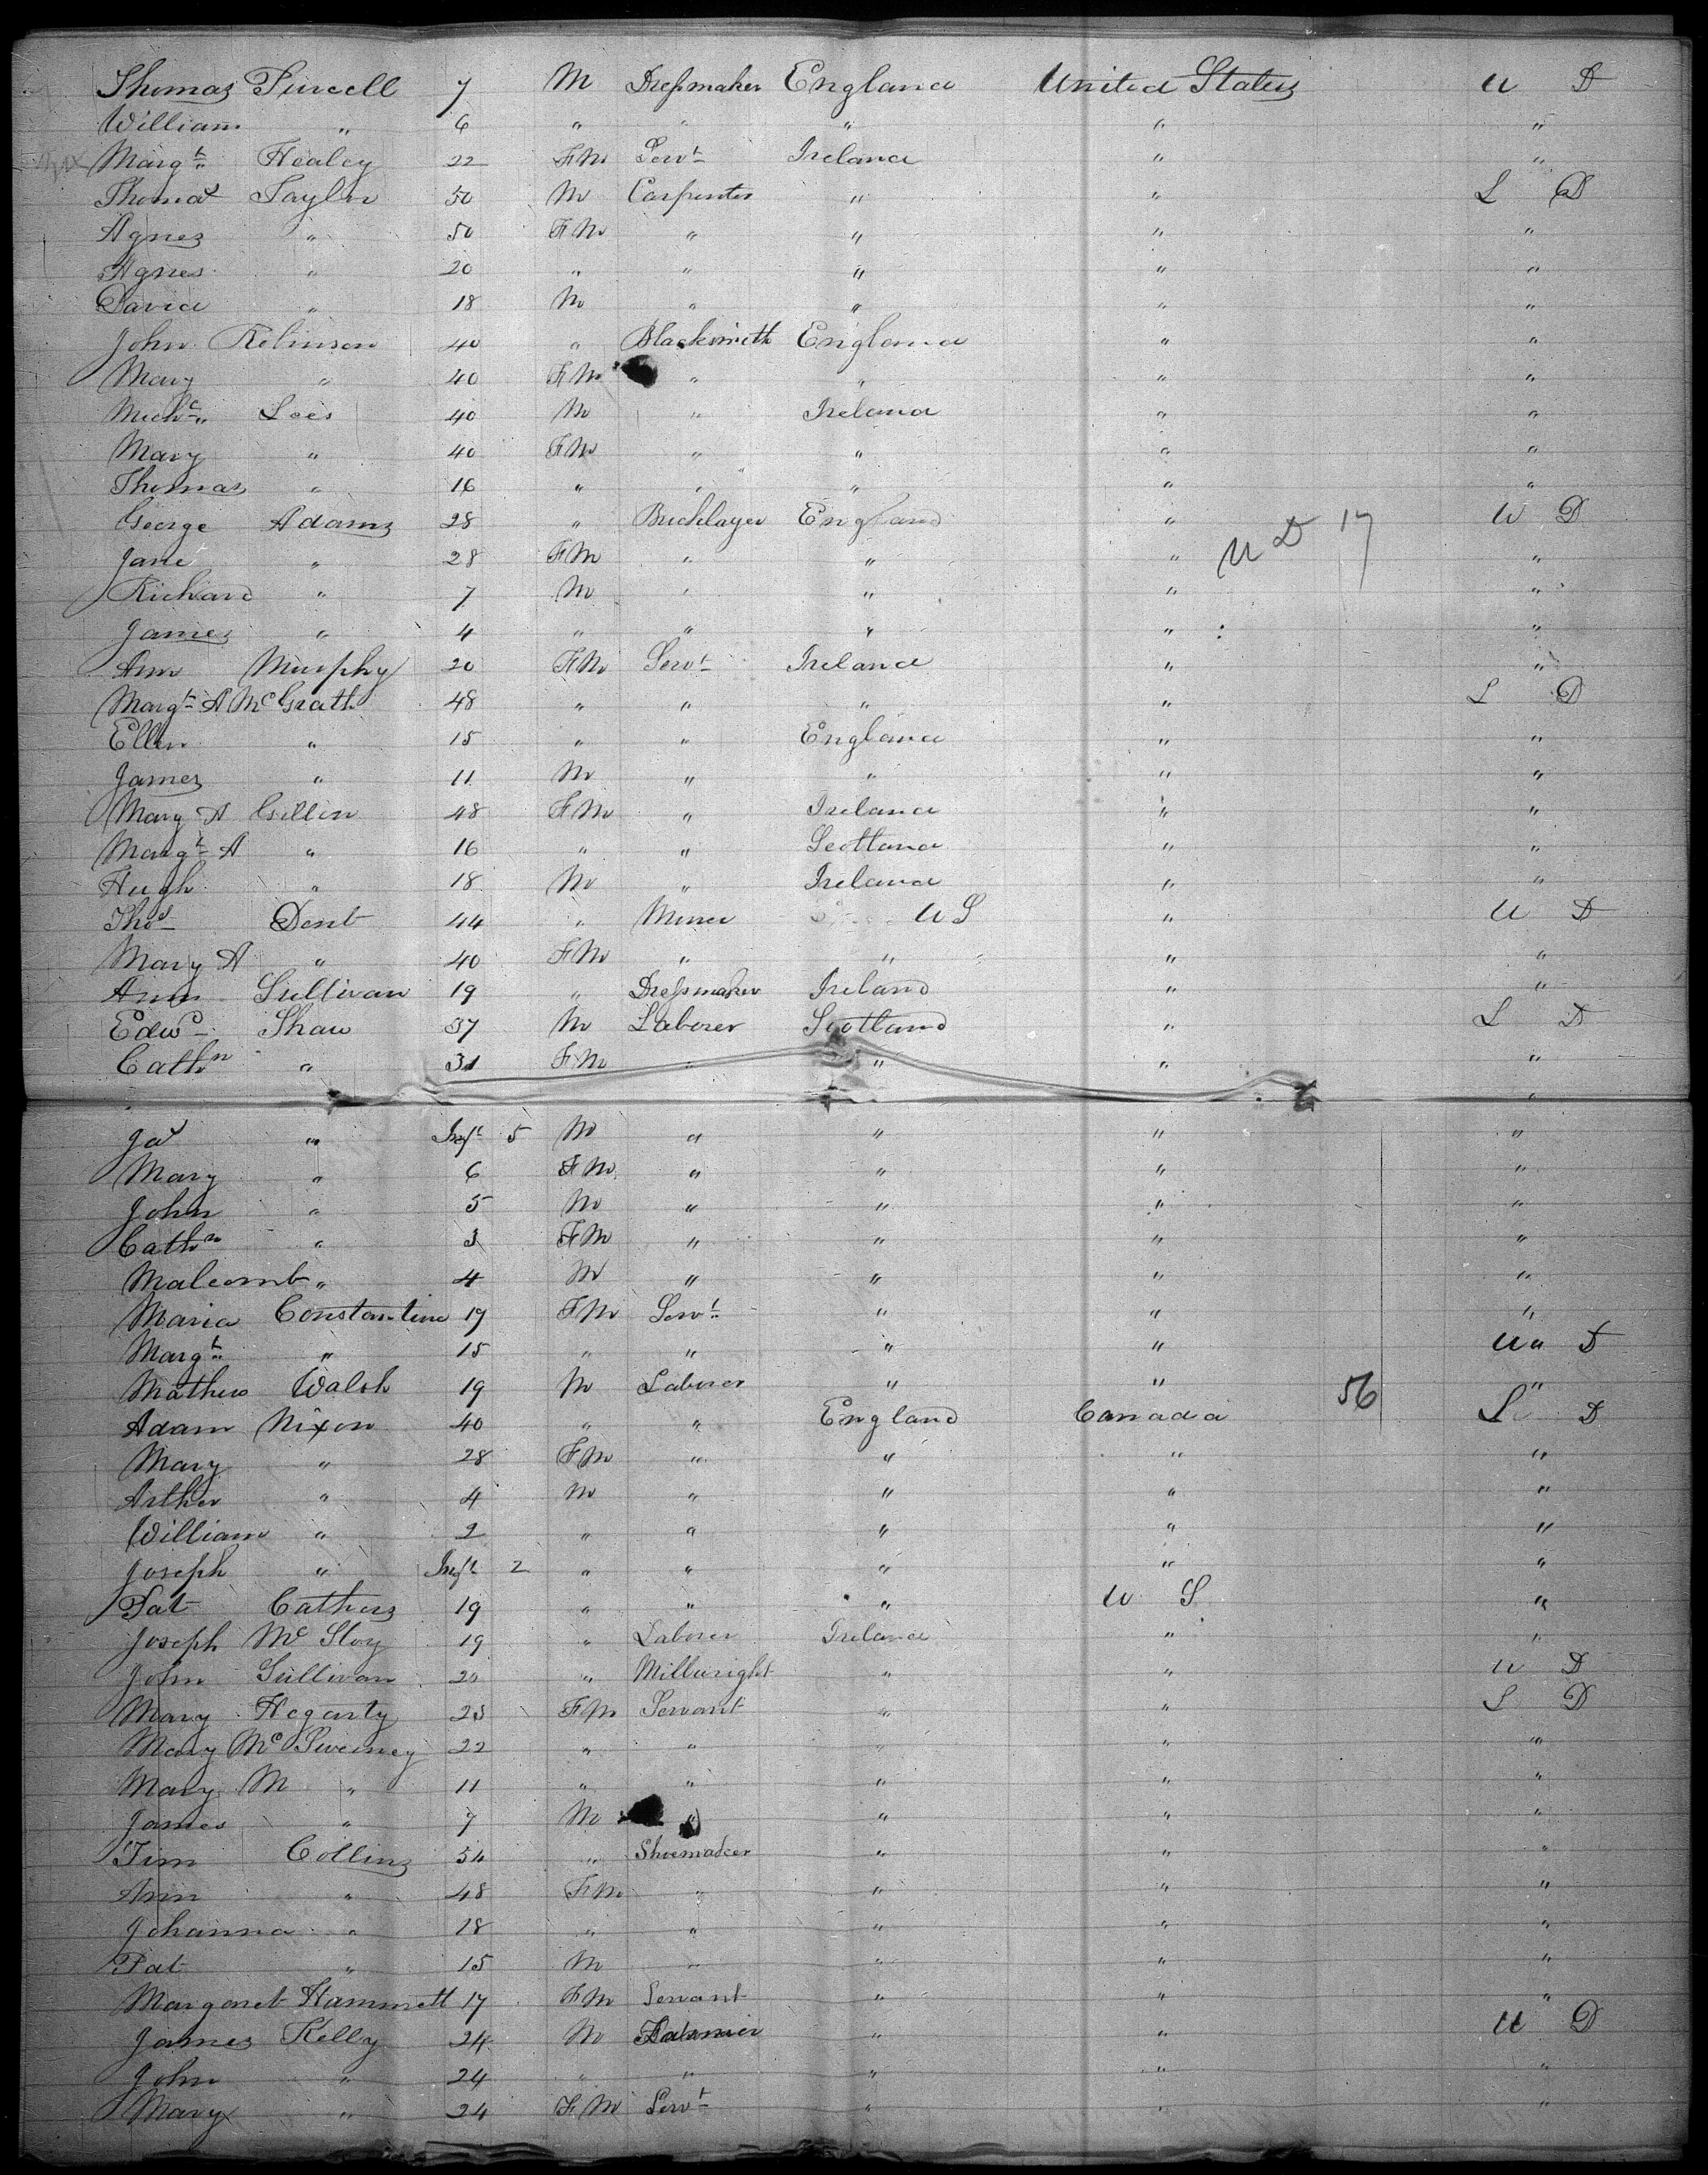 Thomas Purcell 7 M Dressmaker England United States U D
William " 6 " " " " "
Margt Healey 22 FM Servt Ireland " "
Thomas Taylor 50 M Carpenter " " L D
Agnes " 50 FM " " " "
Agnes " 20 " " " " "
David " 18 M " " " "
John Robinson 40 " Blacksmith England " "
Mary " 40 FM " " " "
Michl Lees 40 M " Ireland " "
Mary " 40 FM " " " "
Thomas " 16 " " " " "
George Adams 28 " Bricklayer England " U D
U D 17
Jane " 28 FM " " " "
Richard " 7 M " " " "
James " 4 " " " " "
Ann Murphy 20 FM Servt Ireland " "
Margt A McGrath 48 " " " " L D
Ellen " 15 " " England " "
James " 11 M " " " "
Mary A Gillin 48 FM " Ireland " "
Margt A " 16 " " Scotland " "
Hugh " 18 M " Ireland " "
Thos Dent 44 " Miner U S " U D
Mary A " 40 FM " " " "
Ann Sullivan 19 " Dressmaker Ireland " "
Edwd Shaw 37 M Laborer Scotland " L D
Cathn " 31 FM " " " "
Jas " Inft 5 M " " " "
Mary " 6 FM " " " "
John " 5 M " " " "
Cathn " 3 FM " " " "
Malcomb " 4 M " " " "
Maria Constantine 17 FM Servt " " "
Margt " 15 " " " " U " D
Mathew Walsh 19 M Laborer " " 56 "
Adam Nixon 40 " " England Canada L D
Mary " 28 FM " " " "
Arther " 4 M " " " "
William " 2 " " " " "
Joseph " Inft 2 " " " " "
Pat Cathers 19 " " " U S "
Joseph McSloy 19 " Laborer Ireland " "
John Sullivan 20 " Millwright " " U D
Mary Hegarty 25 FM Servant " " L D
Mary McSweeney 22 " " " " "
Mary M " 11 " " " " "
James " 7 M " " " "
Tim Collins 54 " Shoemaker " " "
Ann " 48 FM " " " "
Johanna " 18 " " " " "
Pat " 15 M " " " "
Margaret Hammett 17 FM Servant " " "
James Kelly 24 M Farmer " " U D
John " 24 " " " " "
Mary " 24 FM Servt " " "